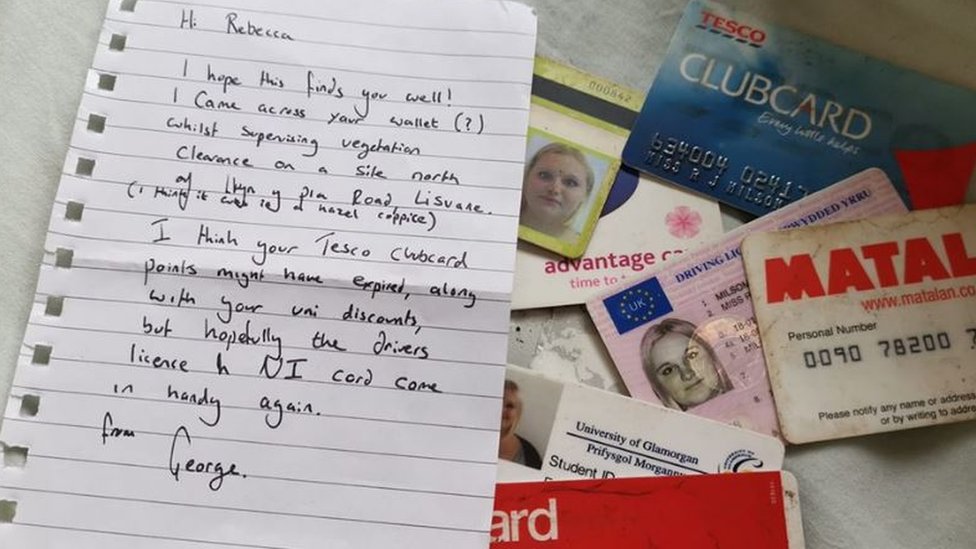 Hi Rebecca
I hope this finds you well!
I came across your wallet (?)
whilst supervising vegetation
clearance on a site north
of Llwyn y Pia Road, Lisvane.
(I think it was in a hazel coppice)
I think your Tesco Clubcard
points might have expired, along
with your uni discounts,
but hopefully the drivers
licence & NI card come
in handy again.
from
George.
000842
TESCO
CLUBCARD
Every little helps
634004 02417
MISS R J MILSON
advantage car
time to
DRIVING LIC
WYDDED YRRU
UK
1. MILSON
2. MISS R
3. 18-0
MATALAN
www.matalan.co
Personal Number
0090 78200 7
Please notify any name or address
or by writing to addre
University of Glamorgan
Prifysgol Morgannw
Student ID
ard